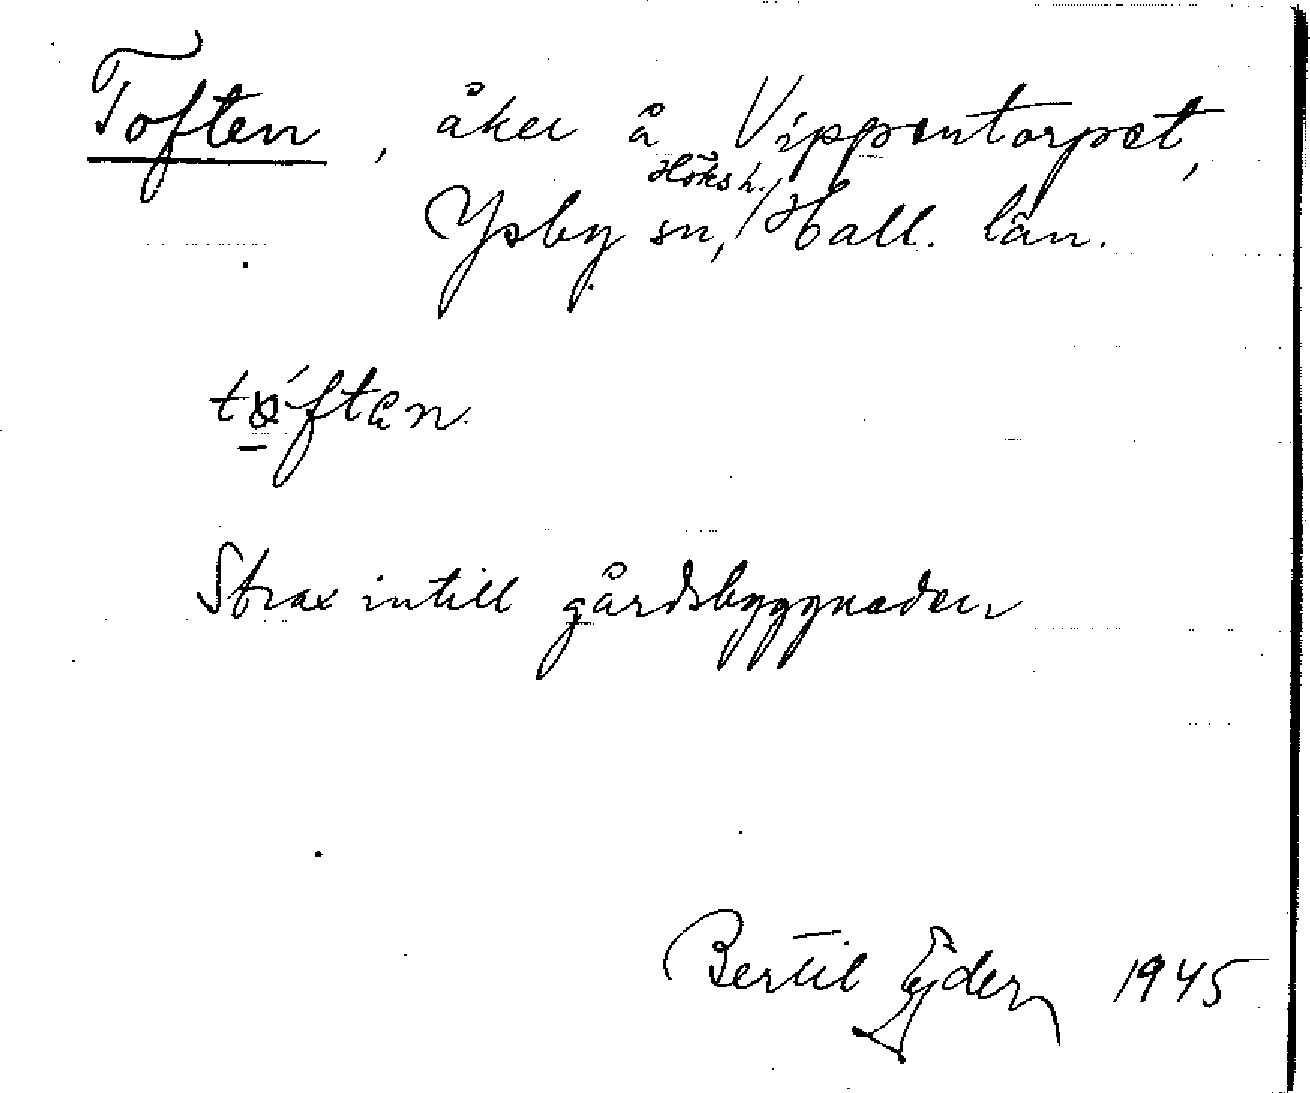 Toften, åker å Vippentorpet,
Höks h.
Ysby sn, / Hall. län.
Strax intill gårdsbyggnaden
Bertil Ejder 1945